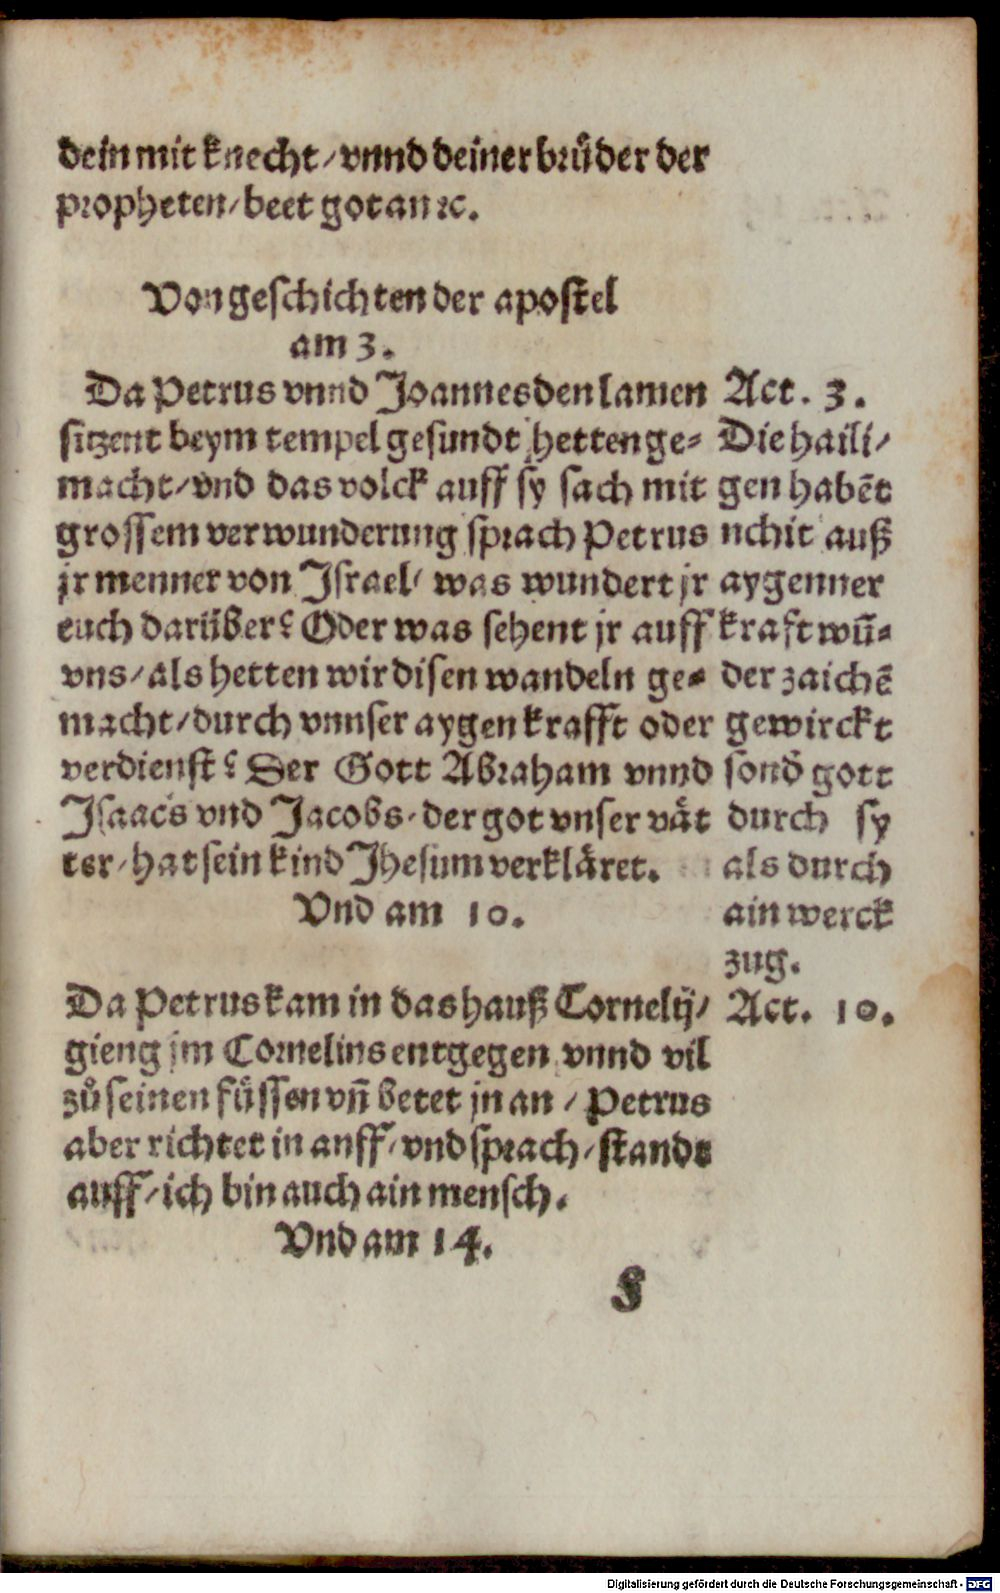 dein mit knecht/ vnnd deiner brůder der
propheten/ beet got an ꝛc.
Von geschichten der apostel
am 3.
Da Petrus vnnd Joannes den lamen
sitzent beym tempel gesundt hetten ge⸗
macht/ vnd das volck auff sy sach mit
grossem verwunderung sprach Petrus
jr menner von Israel/ was wundert jr
euch darüber? Oder was sehent jr auff
vns/ als hetten wir disen wandeln ge⸗
macht/ durch vnnser aygen krafft oder
verdienst? Der Gott Abraham vnnd
Isaacs vnd Jacobs/ der got vnser vät
ter/ hat sein kind Jhesum verkläret.
Vnd am 10.
Da Petrus kam in das hauß Cornelij/
gieng jm Cornelius entgegen vnnd vil
zů seinen füssen vñ betet jn an/ Petrus
aber richtet in auff/ vnd sprach/ standt
auff/ ich bin auch ain mensch.
Vnd am 14.
F
Act. 3.
Die haili/
gen habẽt
nchit auß
aygenner
kraft wũ⸗
der zaichẽ
gewirckt
sonď gott
durch sy
als durch
ain werck
zug.
Act. 10.
Digitalisierung gefördert durch die Deutsche Forschungsgemeinschaft - DFG